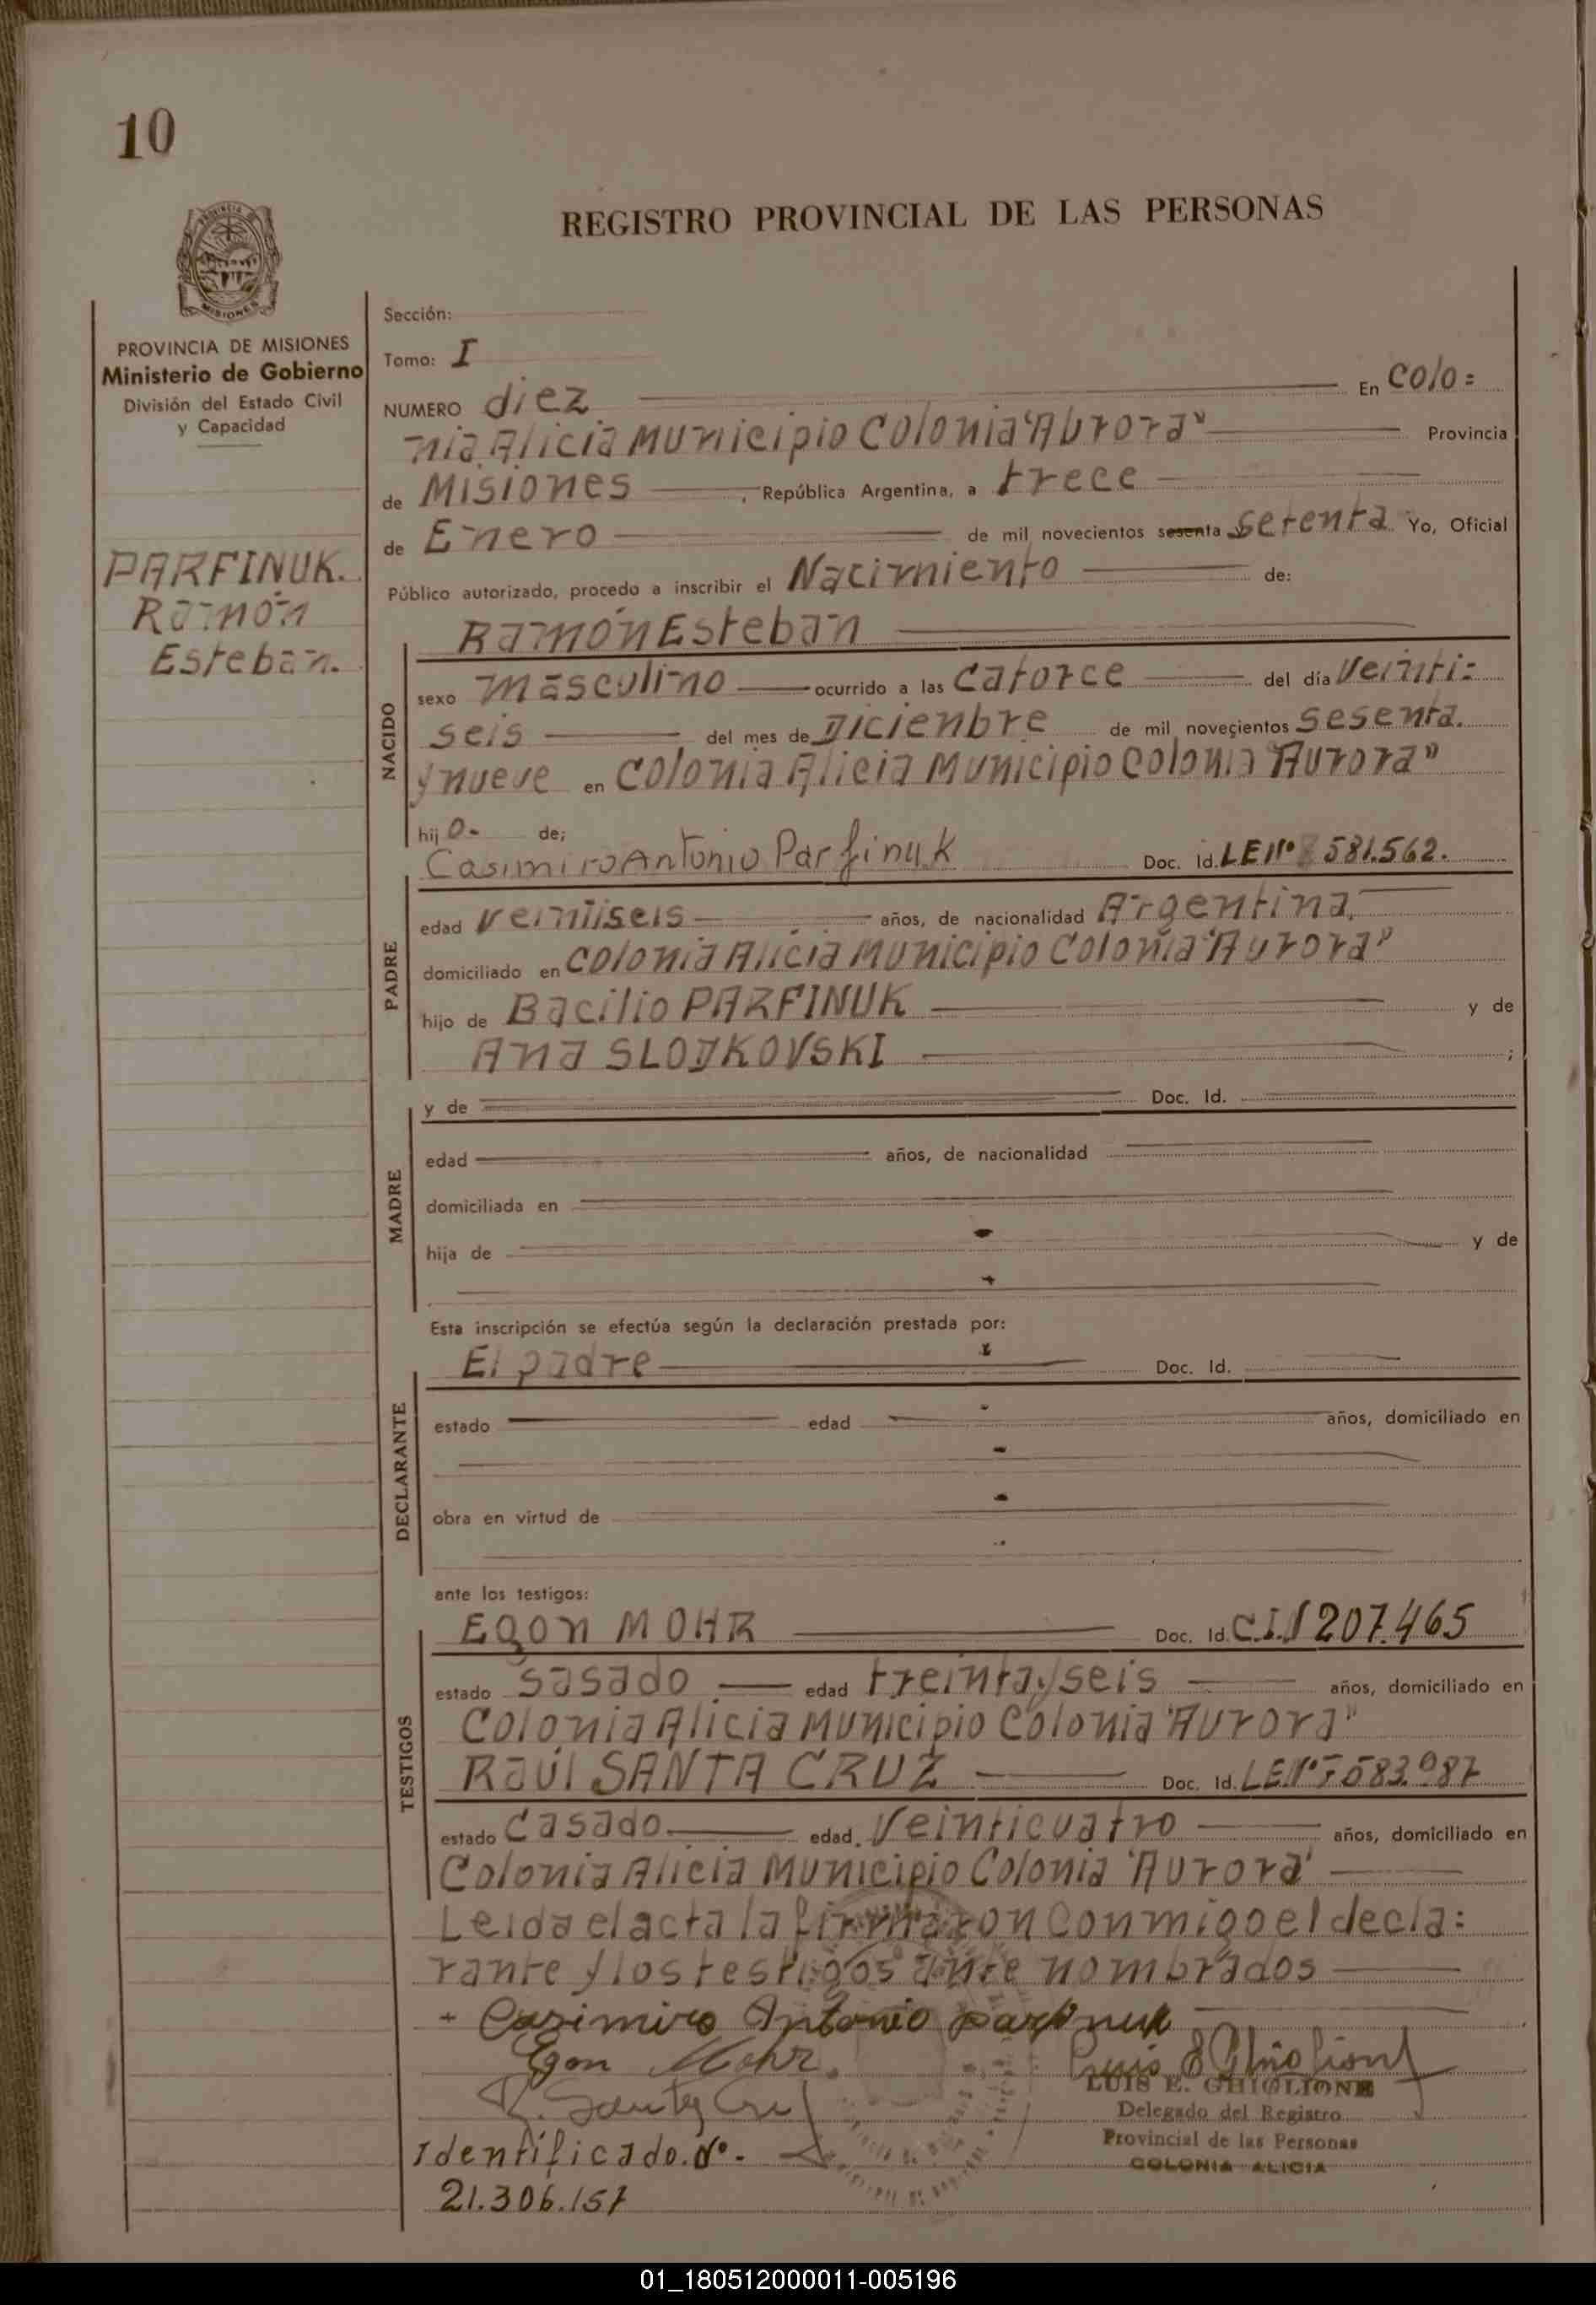 10
REGISTRO PROVINCIAL DE LAS PERSONAS
PROVINCIA DE MISIONES
Ministerio de Gobierno
División del Estado Civil
y Capacidad
PARFINUK.
Ramón
Esteban.
Sección:
Tomo: I
NUMERO diez En Colo=
nia Alicia Municipio Colonia "Aurora" Provincia
de Misiones, República Argentina, a trece
de Enero de mil novecientos sesenta y setenta Yo, Oficial
Público autorizado, procedo a inscribir el Nacimiento de:
Ramón Esteban
NACIDO
sexo masculino ocurrido a las catorce del día veinti=
seis del mes de Dicienbre de mil novecientos sesenta
y nueve en Colonia Alicia Municipio Colonia "Aurora"
hijo- de;
Casimiro Antonio Parfinuk Doc. Id. LE Nº 581.562.
PADRE
edad veintiseis años, de nacionalidad Argentina.
domiciliado en Colonia Alicia Municipio Colonia "Aurora"
hijo de Bacilio PARFINUK y de
Ana SLOJKOVSKI ;
MADRE
y de Doc. Id.
edad años, de nacionalidad
domiciliada en
hija de y de
Esta inscripción se efectúa según la declaración prestada por:
El padre Doc. Id.
DECLARANTE
estado edad años, domiciliado en
obra en virtud de
ante los testigos:
Egon MOHR Doc. Id. C.I. 207.465
TESTIGOS
estado Sasado edad treinta y seis años, domiciliado en
Colonia Alicia Municipio Colonia "Aurora"
Raúl SANTA CRUZ Doc. Id. LE. Nº 7583.987
estado Casado edad. Veinticuatro años, domiciliado en
Colonia Alicia Municipio Colonia "Aurora"
Leida el acta la firmaron Conmigo el decla=
rante y los testigos ante nombrados
+ Casimiro Antonio parfinuk
Egon Mohr.
R. Santa Cruz
LUIS E. GHIGLIONE
Delegado del Registro
Provincial de las Personas
COLONIA ALICIA
Identificado. Nº-
21.306.157
01_180512000011-005196